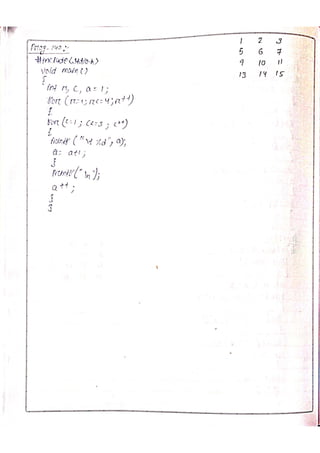 1 2 3
5 6 7
9 10 11
13 14 15
Prog. no:
#include<stdio.h>
void main()
{
int r, c, a=1;
for (r=1; r<=4; r++)
{
for (c=1; c<=3; c++)
{
printf ("%d", a);
a=a+1;
}
printf("\n");
a++;
}
}